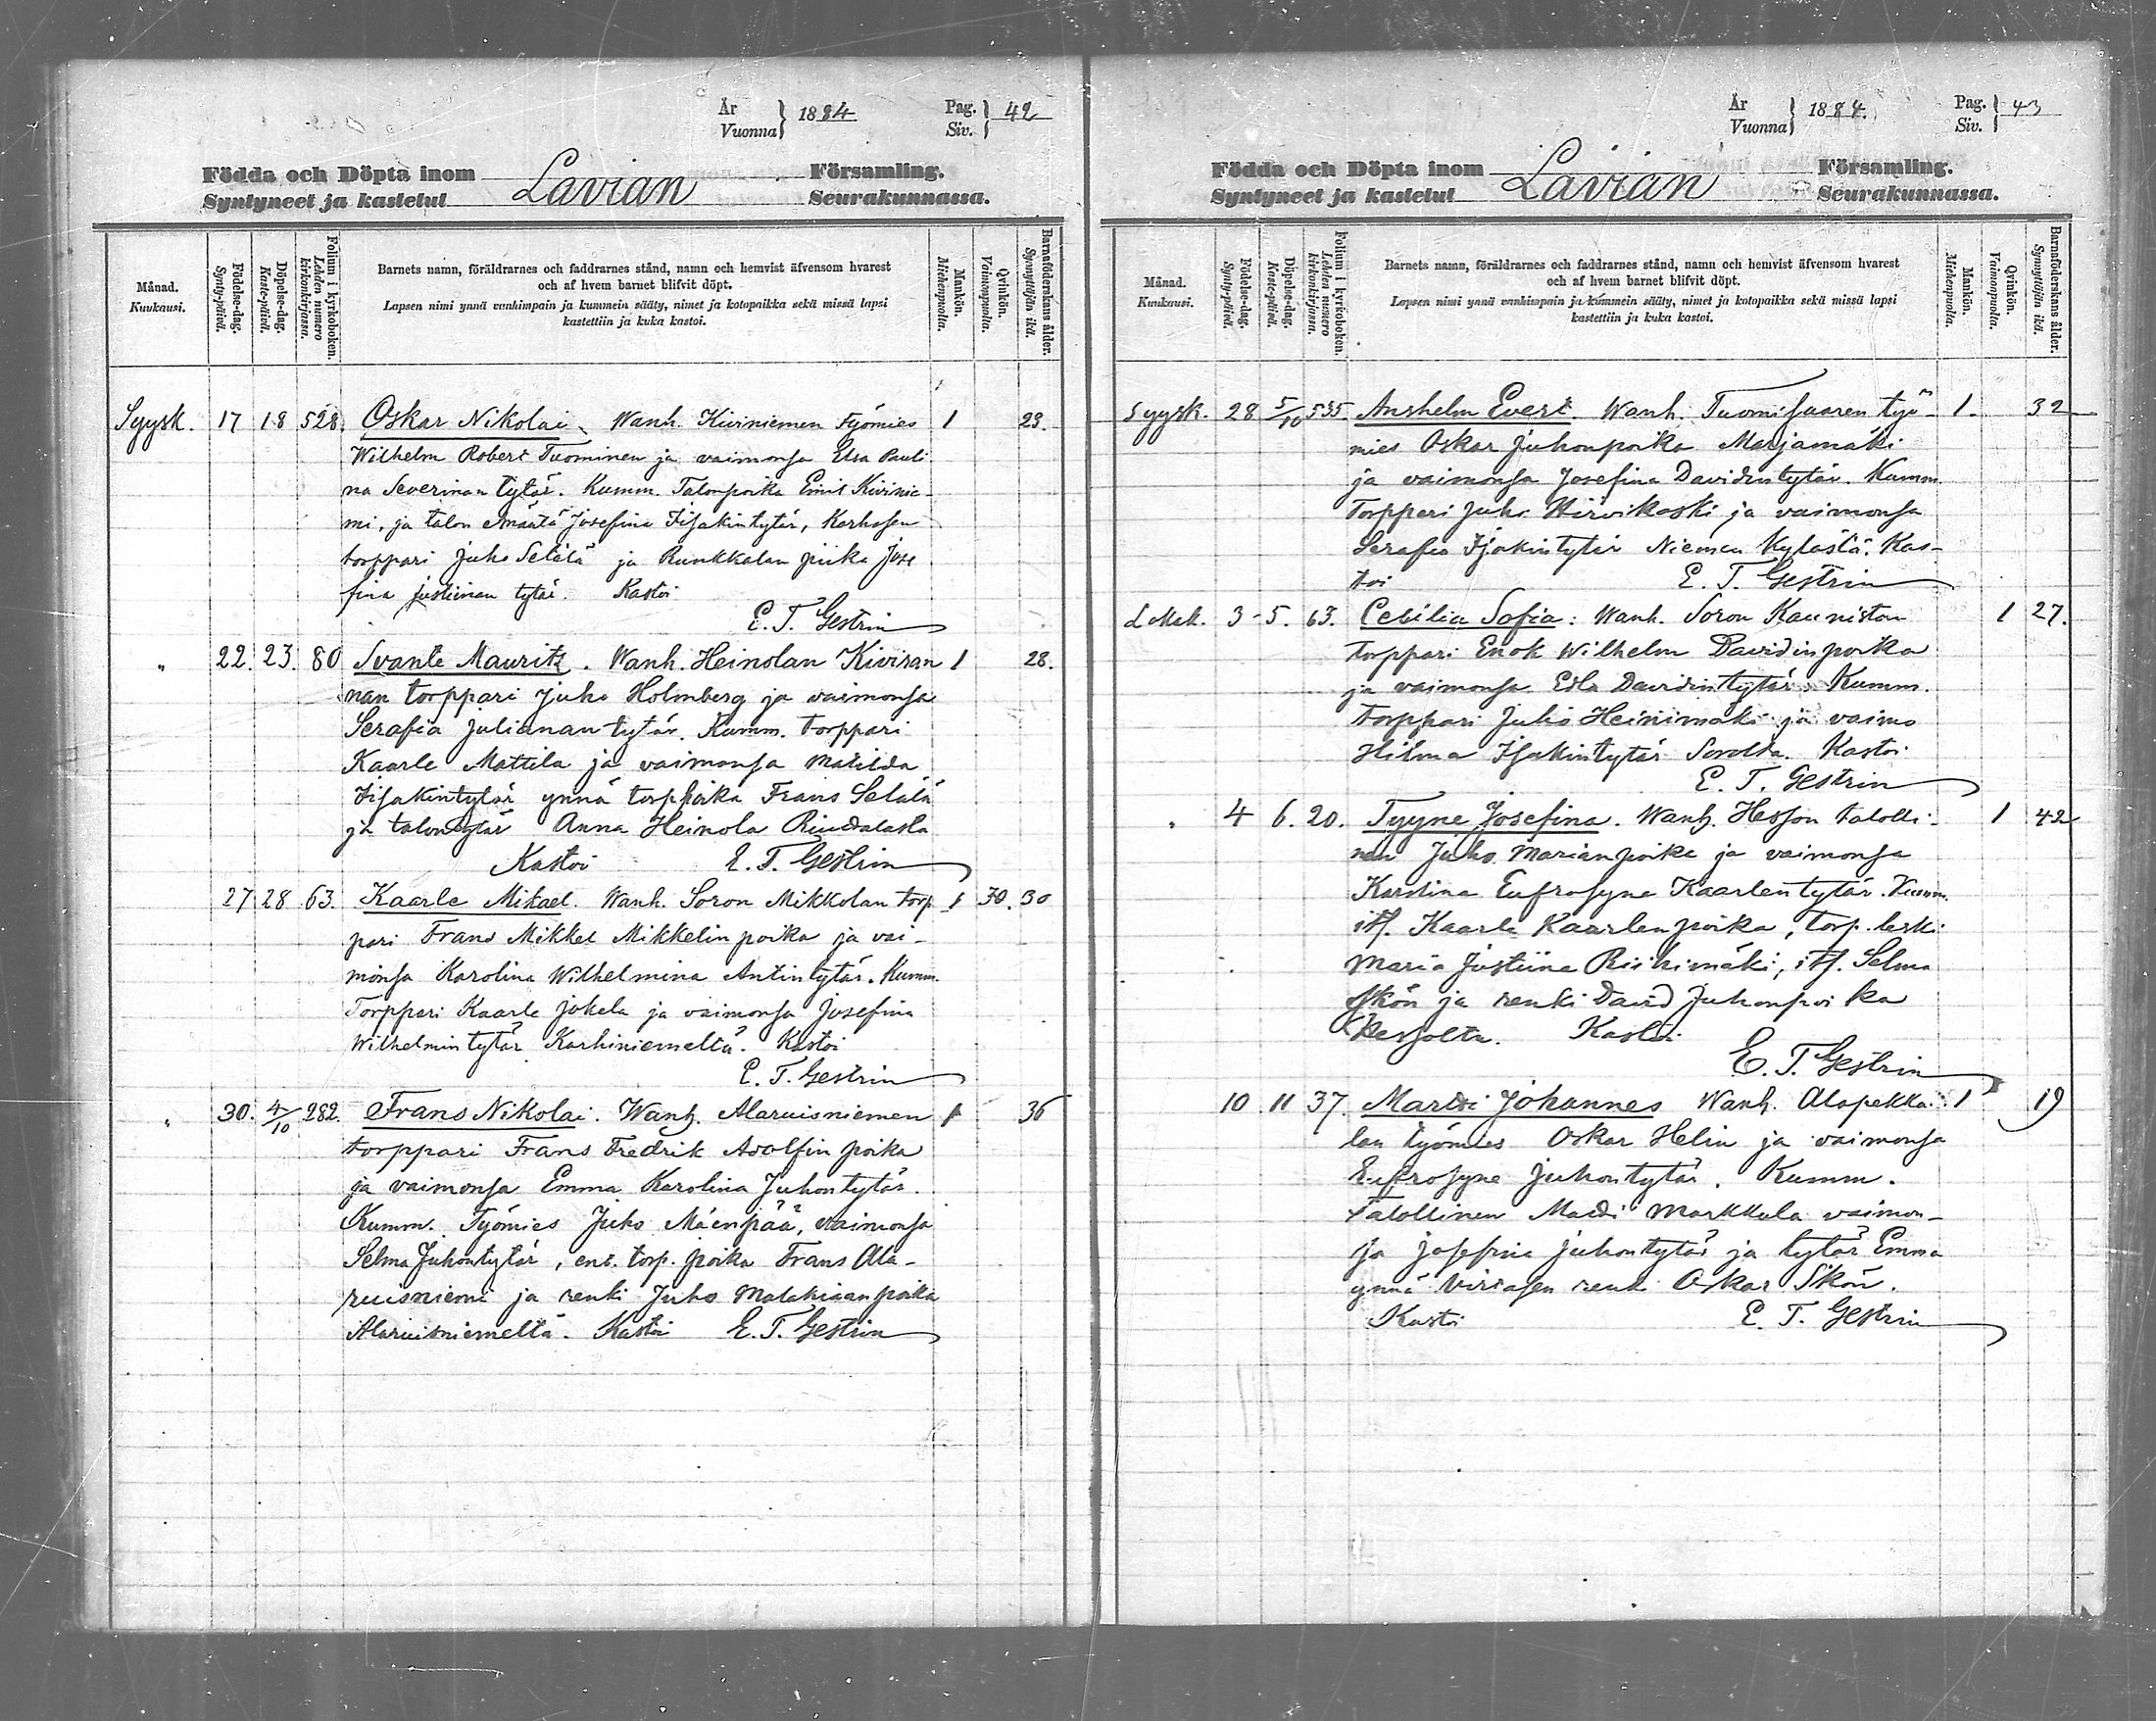 År Vuonna } 1884 Pag. Siv. } 42
Födda och Döpta inom Lavian Församling.
Syntyneet ja kastetut Seurakunnassa.
Månad. Kuukausi.
Födelse-dag. Synty-päivä.
Döpelse-dag. Kaste-päivä.
Folium i kyrkoboken. Lehden numero kirkonkirjassa.
Barnets namn, föräldrarnes och faddrarnes stånd, namn och hemvist äfvensom hvarest
och af hvem barnet blifvit döpt.
Lapsen nimi ynnä vanhimpain ja kummein sääty, nimet ja kotopaikka sekä missä lapsi
kastettiin ja kuka kastoi.
Mankön. Miehenpuolta.
Qvinkön. Vaimonpuolta.
Barnaföderskans ålder. Synnyttäjän ikä.
Syysk. 17 18 528. Oskar Nikolai. Wanh. Kiviniemen työmies 1 23.
Wilhelm Robert Tuominen ja vaimonsa Elsa Pauli
na Severinan tytär. Kumm. Talonpoika Emil Kivinie-
mi, ja talon emäntä Josefina Iisakintytär, Karhosen
torppari Juho Setälä ja Runkkalan piika Jose
fina Justiinan tytär. Kastoi
E. T. Gestrin
" 22. 23. 80 Svante Maurits. Wanh. Heinolan Kiviran 1 28.
nan torppari Juho Holmberg ja vaimonsa
Serafia Julianan tytär. Kumm. torppari
Kaarle Mattila ja vaimonsa Matilda
Iisakintytär ynnä torp poika Frans Setälä
ja talontytär Anna Heinola
Kastoi E. T. Gestrin
27 28 63. Kaarle Mikael. Wanh. Soron Mikkolan torp 1 30. 30
pari Frans Mikkel Mikkelin poika ja vai-
monsa Karolina Wilhelmina Antintytär. Kumm.
Torppari Kaarle Jokela ja vaimonsa Josefina
Wilhelmin tytär Karhiniemeltä. Kastoi
E. T. Gestrin
" 30. 4/10 282. Frans Nikolai. Wanh. Alaruisniemen 1 36
torppari Frans Fredrik Adolfin poika
ja vaimonsa Emma Karolina Juhontytär.
Kumm. Työmies Juho Mäenpää, vaimonsa
Selma Juhontytär, ent. torp. poika Frans Ala-
ruisniemi ja renki Juho Malakiaan poika
Alaruisniemeltä. Kastoi E. T. Gestrin
År Vuonna } 1884. Pag. Siv. } 43
Födda och Döpta inom Lavian Församling.
Syntyneet ja kastetut Seurakunnassa.
Månad. Kuukausi.
Födelse-dag. Synty-päivä.
Döpelse-dag. Kaste-päivä.
Folium i kyrkoboken. Lehden numero kirkonkirjassa.
Barnets namn, föräldrarnes och faddrarnes stånd, namn och hemvist äfvensom hvarest
och af hvem barnet blifvit döpt.
Lapsen nimi ynnä vanhimpain ja kummein sääty, nimet ja kotopaikka sekä missä lapsi
kastettiin ja kuka kastoi.
Mankön. Miehenpuolta.
Qvinkön. Vaimonpuolta.
Barnaföderskans ålder. Synnyttäjän ikä.
Syysk. 28 5/10 535. Anshelm Evert. Wanh. Tuomisaaren työ- 1. 32
mies Oskar Juhonpoika Marjamäki
ja vaimonsa Josefina Davidintytär. Kumm.
Torppari Juho Hirvikoski ja vaimonsa
Serafia Isakintytär Niemen kylästä. Kas-
toi E. T. Gestrin
Lokak. 3 5. 63. Cecilia Sofia: Wanh. Soron Kauniston 1 27.
torppari Enok Wilhelm Davidinpoika
ja vaimonsa Edla Davidintytär. Kumm.
torppari Juho Heinimäki ja vaimo
Hilma Isakintytär Sorolta. Kastoi
E. T. Gestrin
" 4 6. 20. Tyyne Josefina. Wanh. Hesson talolli- 1 42
nen Juho Marianpoika ja vaimonsa
Karolina Eufrosyne Kaarlen tytär. Kumm.
its. Kaarle Kaarlen poika, torp. leski
Maria Justiina Riihimäki, its. Selma
Skön ja renki David Juhonpoika
Hessolta. Kastoi
E. T. Gestrin
10 11 37. Martti Johannes Wanh. Alapekka 1 19
lan työmies Oskar Helin ja vaimonsa
Eufrosyne Juhontytär. Kumm.
Talollinen Matti Markkula vaimon-
sa Josefina Juhontytär ja tytär Emma
ynnä renki Oskar Skön.
Kastoi E. T. Gestrin